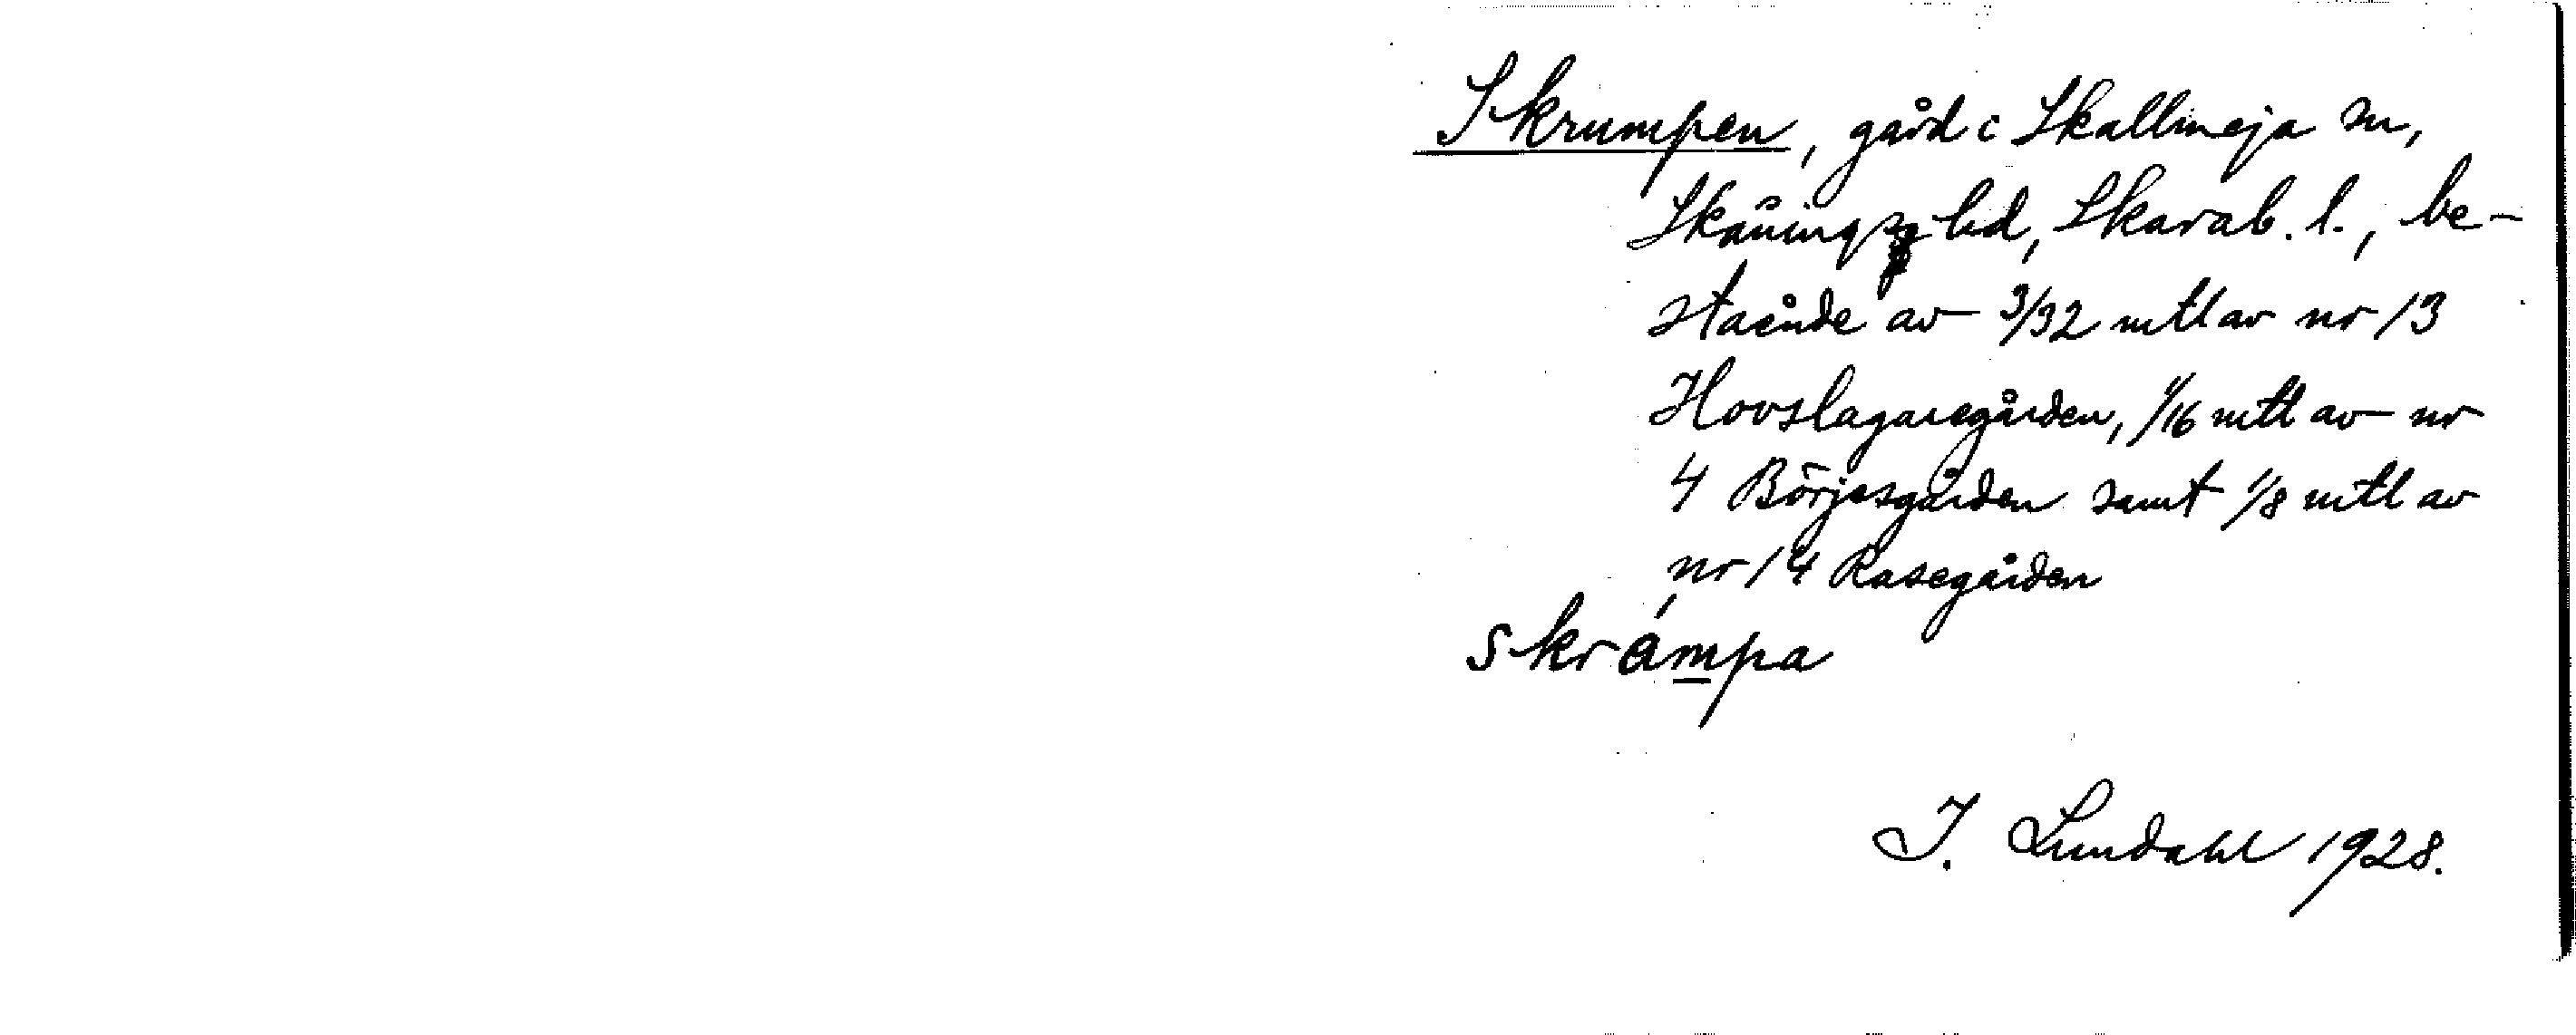 Skrumpen, gård i Skallmeja sn,
Skånings hd, Skarab. l., be-
stående av 3/32 mtl av nr 13
Hovslagaregården, 1/16 mtl av nr
4 Börjesgården samt 1/8 mtl av
nr 14 Rasegården
skrámpa
I. Lundahl 1928.